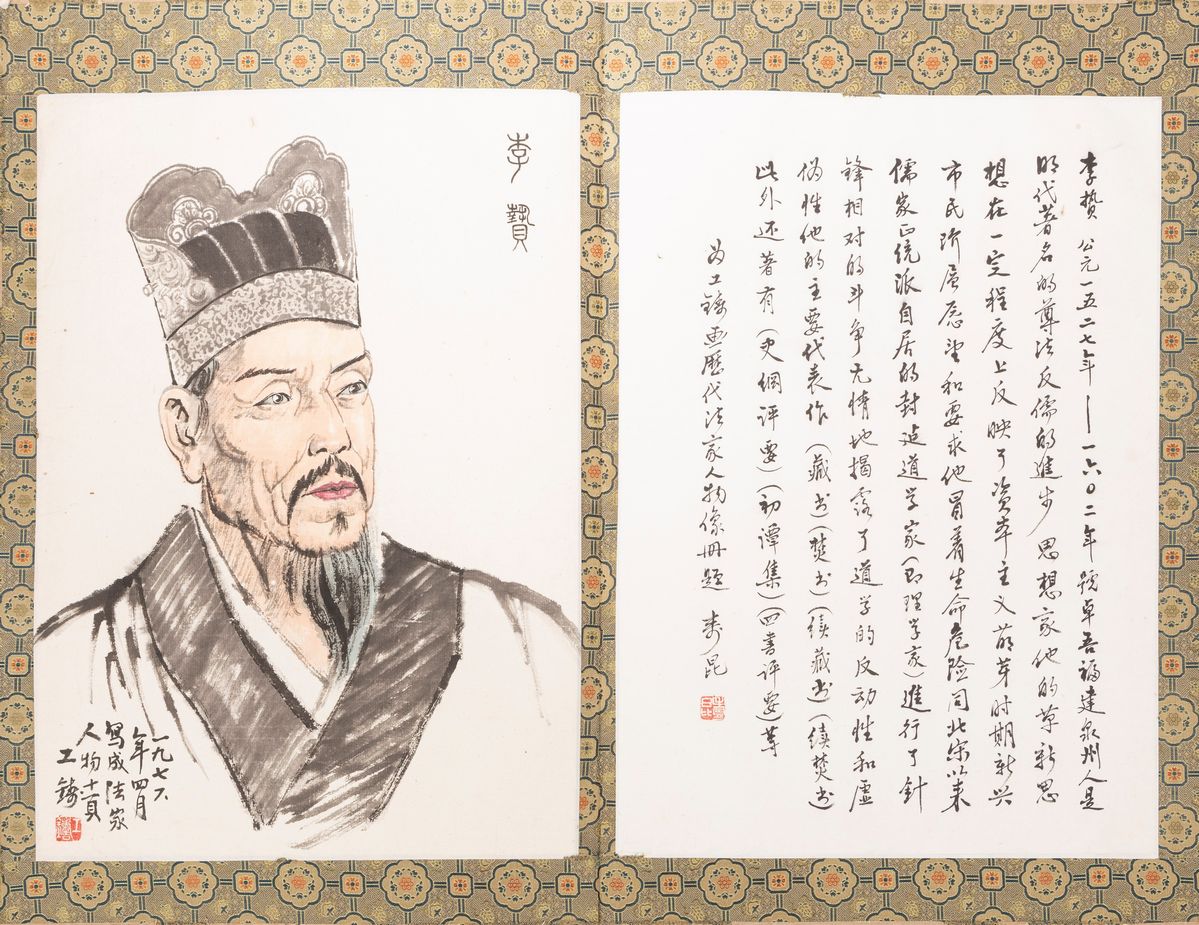 李贄
一九七六
年四月
寫成法家
人物
工鑄
李贽 公元一五二七年——一六〇二年號卓吾福建泉州人是
明代著名的尊法反儒的進步思想家他的革新思
想在一定程度上反映了资本主义萌芽时期新兴
市民阶层愿望和要求他冒着生命危险同北宋以来
儒家正统派自居的封建道学家(即理学家)進行了針
锋相对的斗争无情地揭露了道学的反动性和虚
伪性他的主要代表作(藏书)(焚书)(续藏书)(续焚书
此外还著有(史綱评要)(初谭集)(四書评要)等
为工鑄画歷代法家人物像册题 昆